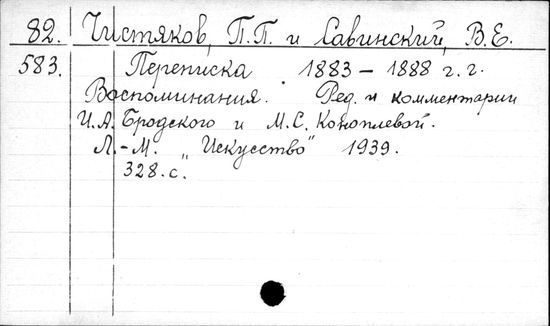 82. Чистяков, П.П. и Савинский, В.Е.
583. Переписка 1883 – 1888 г.г.
Воспоминания. Ред. и комментарии
И.А. Бродского и М.С. Коноплевой.
Л.-М. „Искусство" 1939.
328.с.